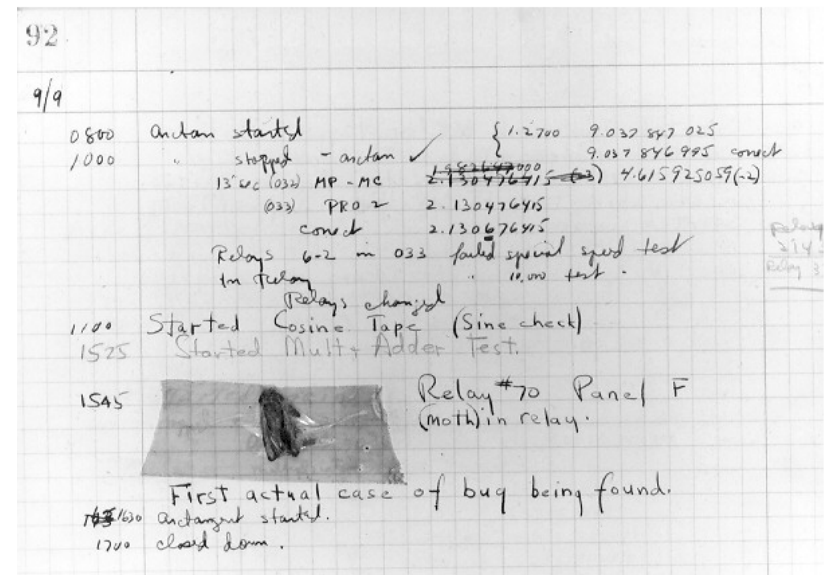 92
9/9
0800 anctan started { 1.2700 9.037 847 025
1000 " stopped - anctan ✓ 9.037 846 995 conect
13"uc (032) MP - MC 2.130476415 4.615925059(-2)
(033) PRO 2 2.130476415
conect 2.130676415
Relays 6-2 in 033 failed special speed test
In Relay " 10,000 test.
Relays changed
1100 Started Cosine Tape (Sine check)
1525 Started Mult + Adder Test.
1545 Relay #70 Panel F
(moth) in relay.
First actual case of bug being found.
1630 anctangent started.
1700 closed down.
Relay
Relay 3